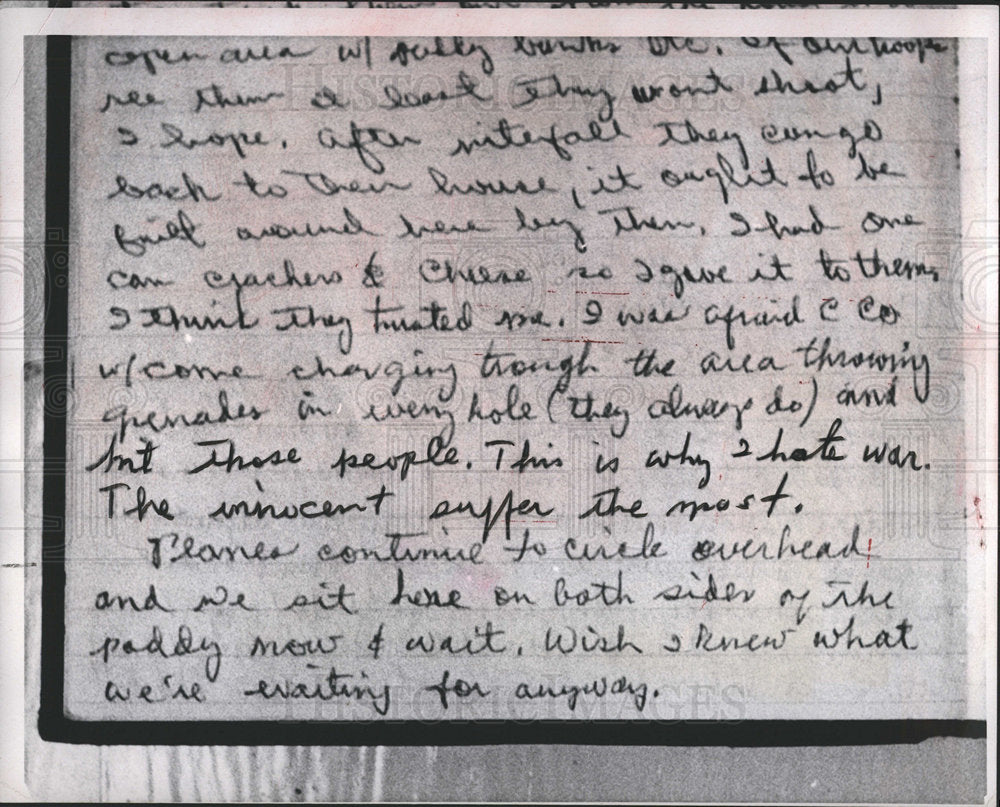 open area w/ gully banks etc. If our troops
see them at least they wont shoot,
I hope. After niterfall they can go
back to their house, it ought to be
built around here by then. I had one
can crackers & cheese so I gave it to them.
I think they trusted me. I was afraid C Co
w/come charging trough the area throwing
grenades in every hole (they always do) and
hit those people. This is why I hate war.
The innocent suffer the most.
Planes continue to circle overhead
and we sit here on both sides of the
paddy now & wait. Wish I knew what
we're waiting for anyway.
HISTORIC IMAGES